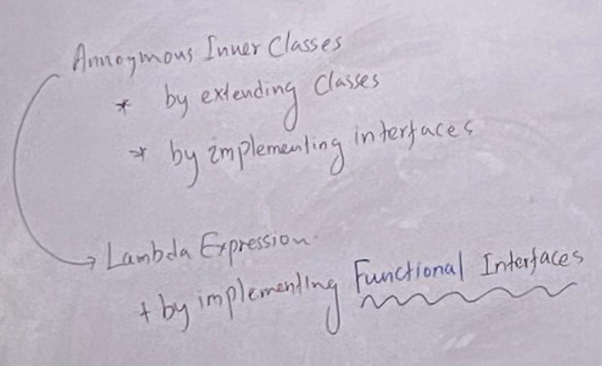 Annoymous Inner Classes
* by extending Classes
* by implementing interfaces
→ Lambda Expression
+ by implementing Functional Interfaces